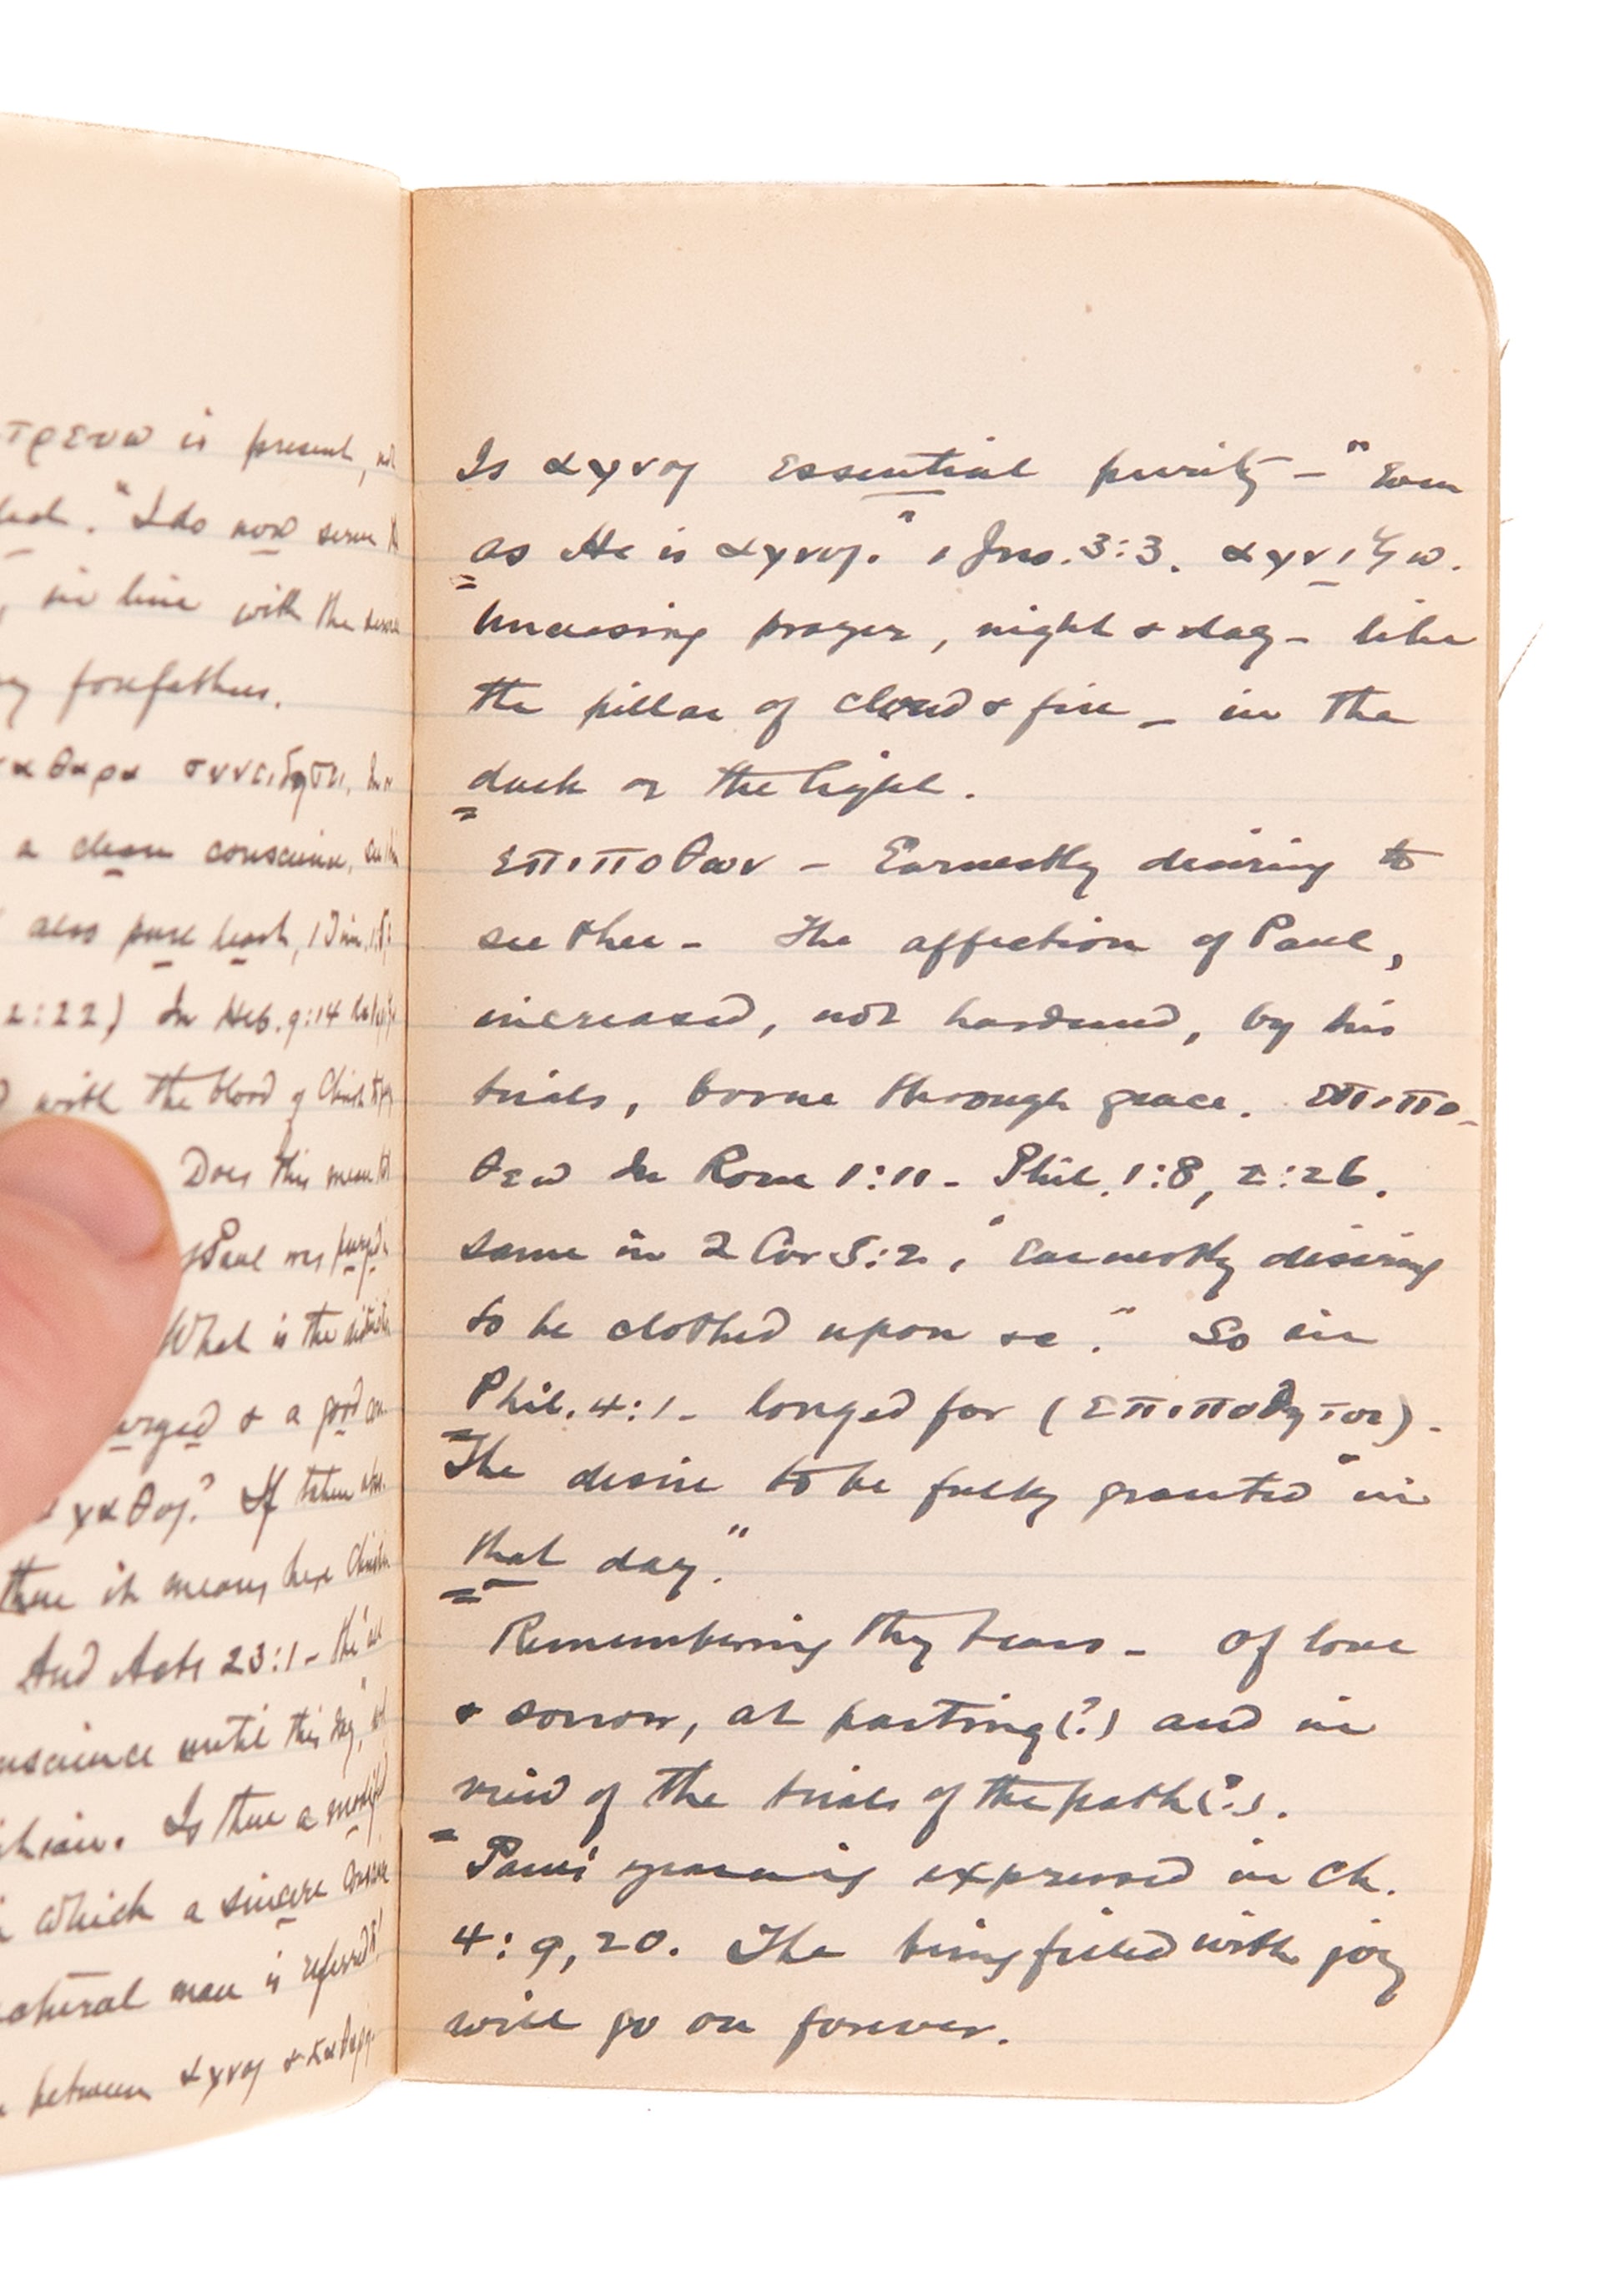 τρευω is present, not
"I do now serve
, in line with the
forefathers.
καθαρα συνειδησει,
a clean conscience,
also pure heart, 1 Tim. 1:5;
2:22) In Heb. 9:14
with the blood of Christ
Does this mean
Paul was purged
What is the
purged & a good
αγαθος? If taken
there it means here
And Acts 23:1 - the
conscience until this day,"
Is there a
which a sincere
natural man is referred
between αγνος & καθαρος
Is αγνος essential purity - "Even
as He is αγνος." 1 Jno. 3:3. αγνιζω.
Unceasing prayer, night & day - like
the pillar of cloud & fire - in the
dark or the light.
επιποθων - Earnestly desiring to
see thee - The affection of Paul,
increased, not hardened, by his
trials, borne through grace. επιπο-
θεω In Rom 1:11 - Phil. 1:8, 2:26.
same in 2 Cor 5:2, "Earnestly desiring
to be clothed upon &c." So in
Phil. 4:1 - longed for (επιποθητοι) -
The desire to be fully granted "in
that day."
Remembering thy tears - Of love
& sorrow, at parting (?) and in
view of the trials of the path (?).
Paul's yearning expressed in Ch.
4:9, 20. The being filled with joy
will go on forever.